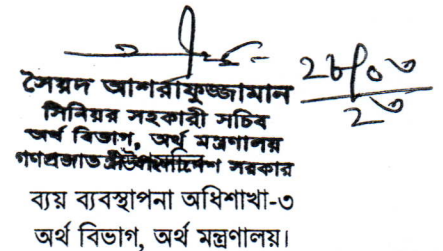 ২৮/০৩
২৩
সৈয়দ আশরাফুজ্জামান
সিনিয়র সহকারী সচিব
অর্থ বিভাগ, অর্থ মন্ত্রণালয়
গণপ্রজাতন্ত্রী সরকার
ব্যয় ব্যবস্থাপনা অধিশাখা-৩
অর্থ বিভাগ, অর্থ মন্ত্রণালয়।